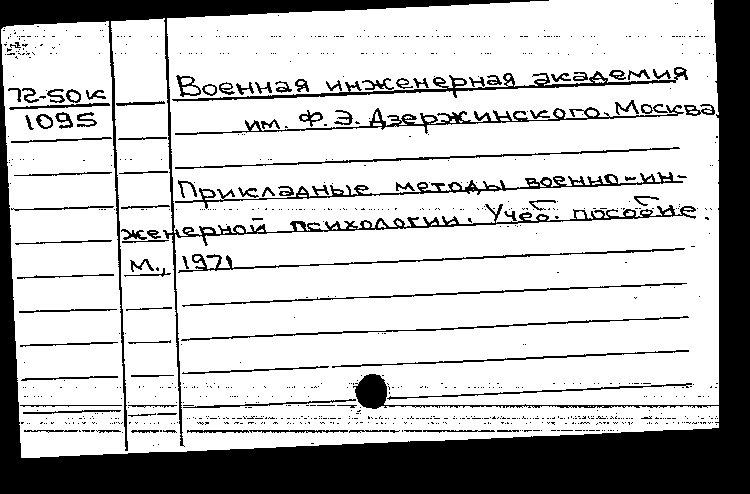 72-50к
1095
Военная инженерная академия
им. Ф.Э. Дзержинского. Москва.
Прикладные методы военно-ин-
женерной психологии. Учеб. пособие.
М., 1971